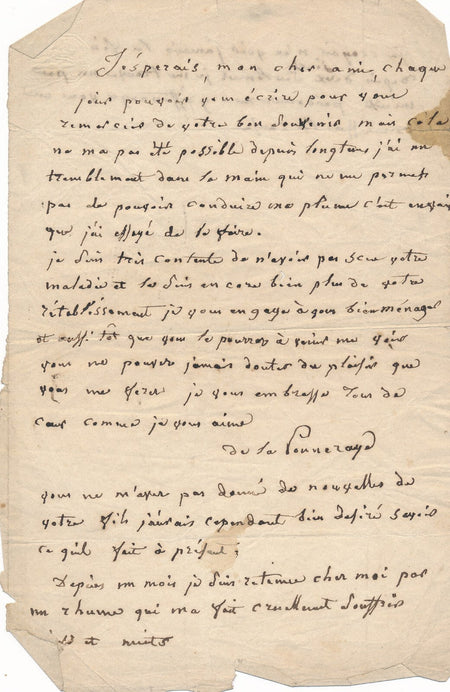 J'ésperais, mon cher ami, chaque
jour pouvoir vous écrire pour vous
remercier de votre bon souvenir mais cela
ne ma pas été possible depuis longtems j'ai un
tremblement dans la main qui ne me permet
pas de pouvoir conduire ma plume c'est en vain
que j'ai essayé de le faire.
je suis très contente de n'avoir pas scu votre
maladie et le suis encore bien plus de votre
rétablissement je vous engage à vous bien ménager
et aussi tôt que vous le pourrez à venir me voir
vous ne pouvez jamais douter du plaisir que
vous me ferez je vous embrasse tout de
cœur comme je vous aime
de la Ponneraye
vous ne m'avez pas donné de nouvelles de
votre fils j'aurais cependant bien desiré savoir
ce qu'il fait à présent;
Depuis un mois je suis retenue chez moi par
un rhume qui ma fait cruellement souffrir
et nuits